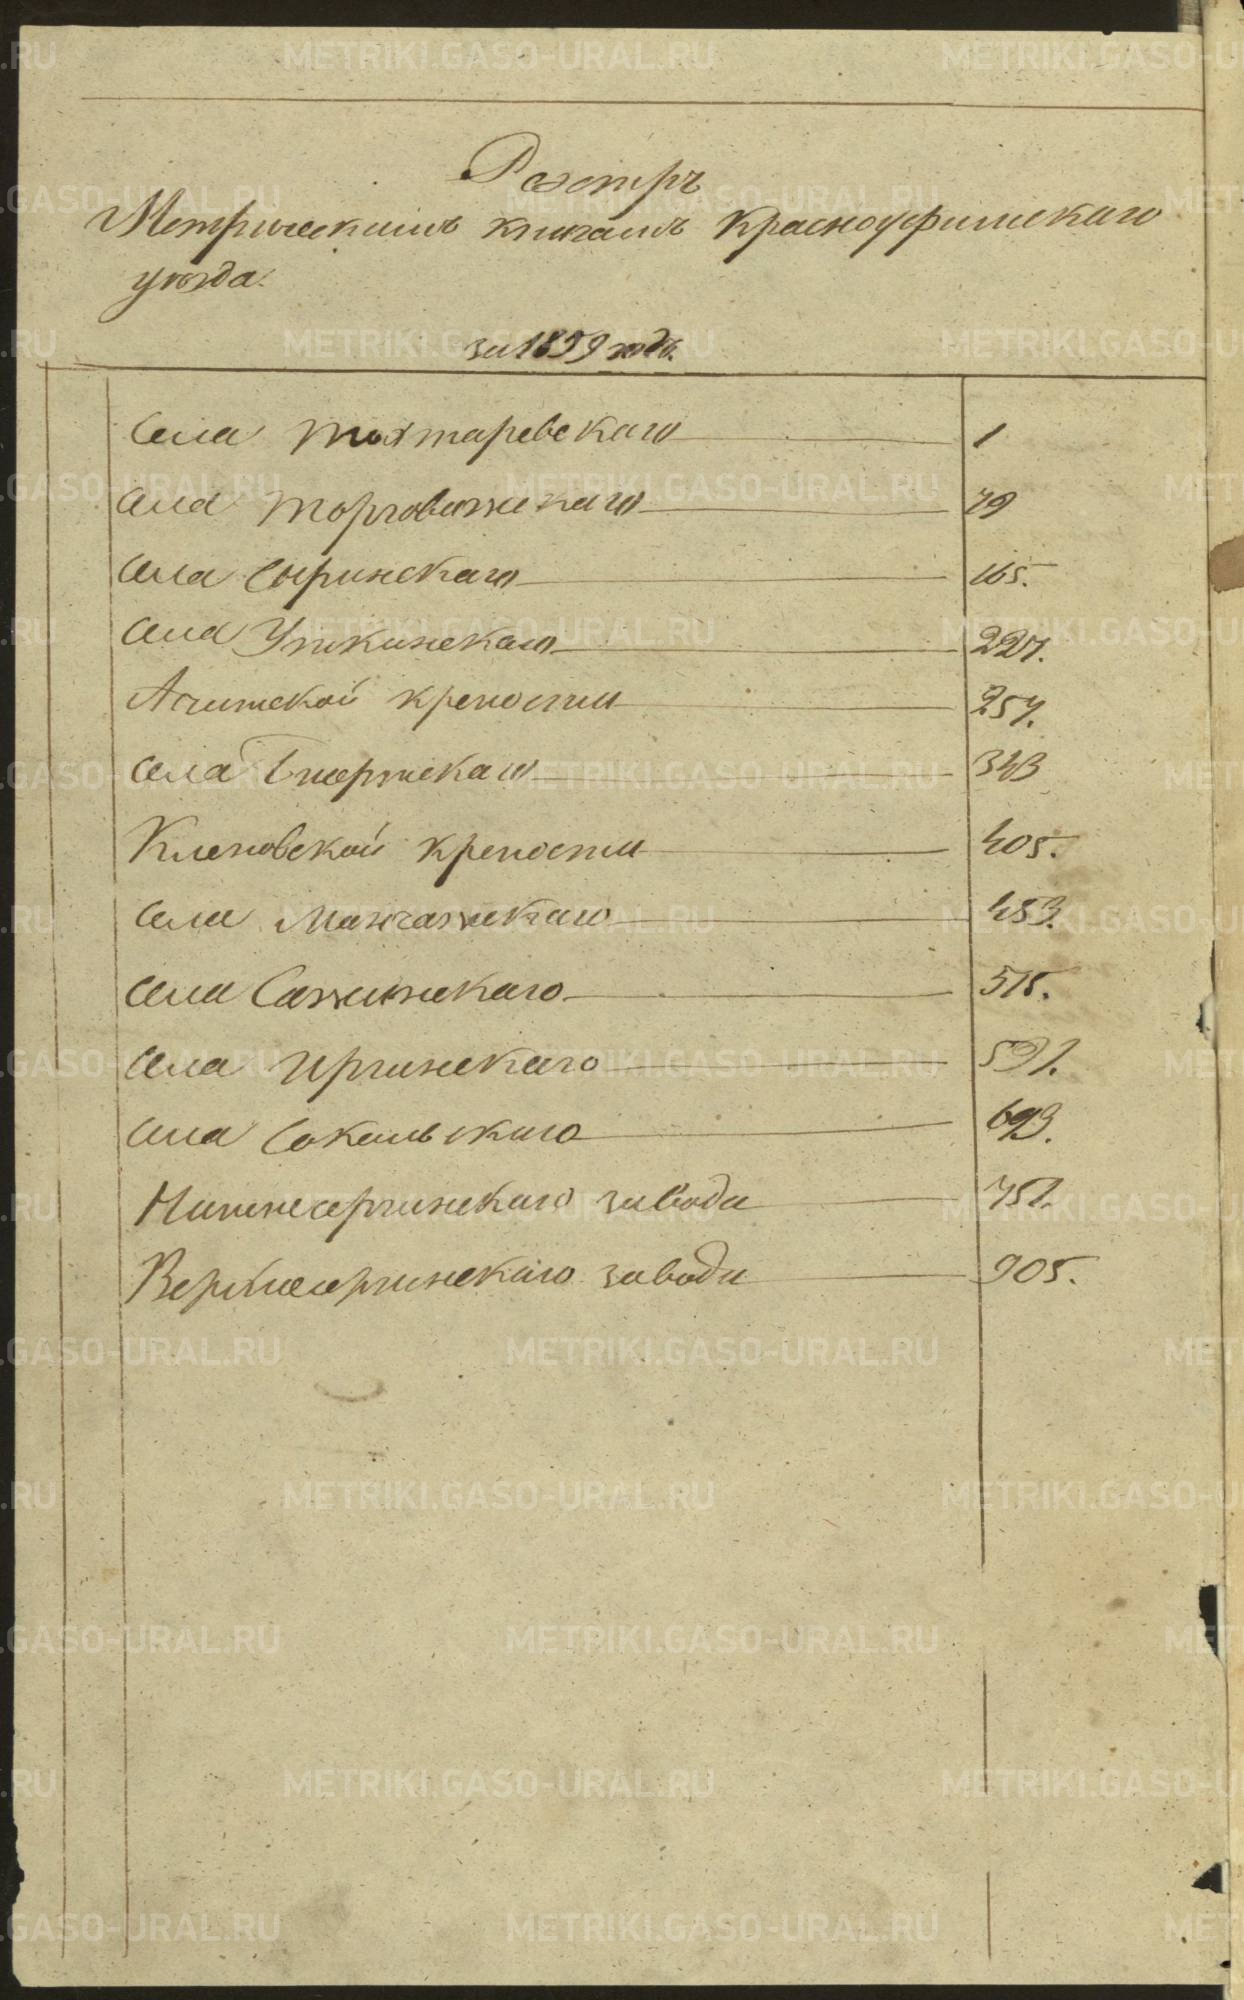 Реэстръ
Метрическимъ книгамъ Красноуфимскаго
уѣзда.
за 1859 годъ.
Села Тохтаревскаго 1
Села Торговижскаго 79
Села Сыринскаго 165.
Села Уткинскаго 227.
Ачитской крепости 257.
Села Бисертскаго 343
Кленовской крепости 405.
Села Манчажскаго 453.
Села Сажинскаго 515.
Села Иргинскаго 591.
Села Сокальскаго 693.
Нижнесергинскаго завода 751.
Верхнесергинскаго завода 905.
METRIKI.GASO-URAL.RU